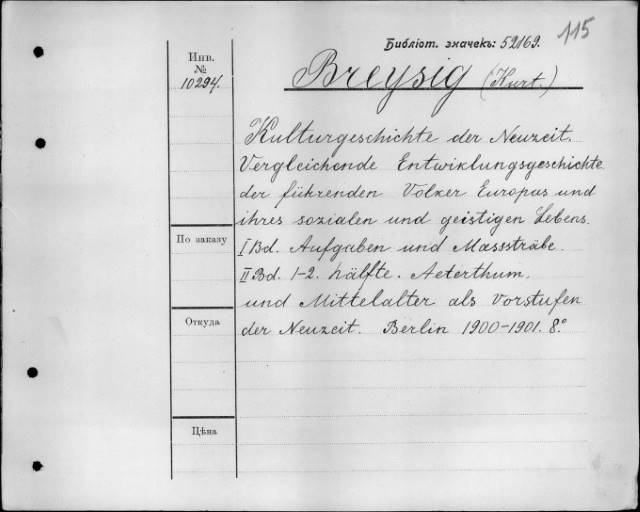 115
Библіот. значекъ: 52169.
Инв.
№
10294.
Breysig (Kurt.)
Kulturgeschichte der Neuzeit.
Vergleichende Entwiklungsgeschichte
der führenden Völker Europas und
ihres sozialen und geistigen Lebens.
I Bd. Aufgaben und Masssträbe.
II Bd. 1-2. hälfte. Aeterthum.
und Mittelalter als Vorstufen
der Neuzeit. Berlin 1900-1901. 8.º
По заказу
Откуда
Цѣна